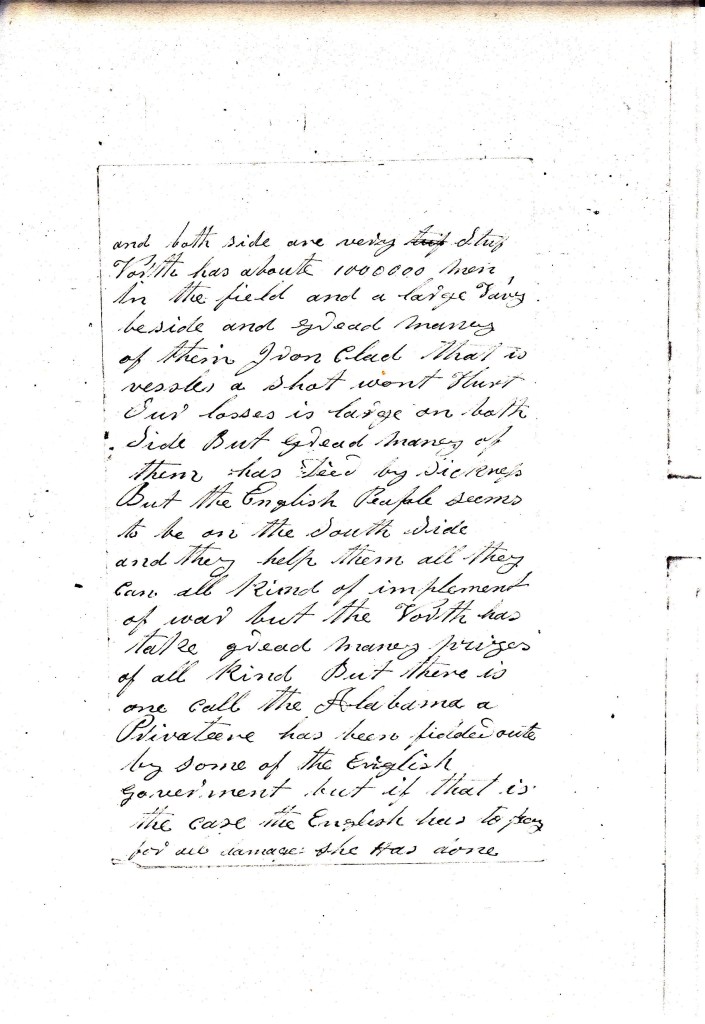 and both side are veray ~~trif~~ Strif
North has aboute 1000000 Men
in the field and a large Navy
beside and gread maney
of them Iron Clad that is
vessles a shot wont Hurt
Our losses is large on both
Side But gread maney of
them has died by Sickness
But the English Peaple seems
to be on the South Side
and they help them all they
can all Kind of implement
of war but the North has
take gread maney prizes
of all Kind But there is
one call the Alabama a
Privateere has been fidded oute
by some of the English
Goverment but if that is
the case the English has to pay
for all damage she Has done